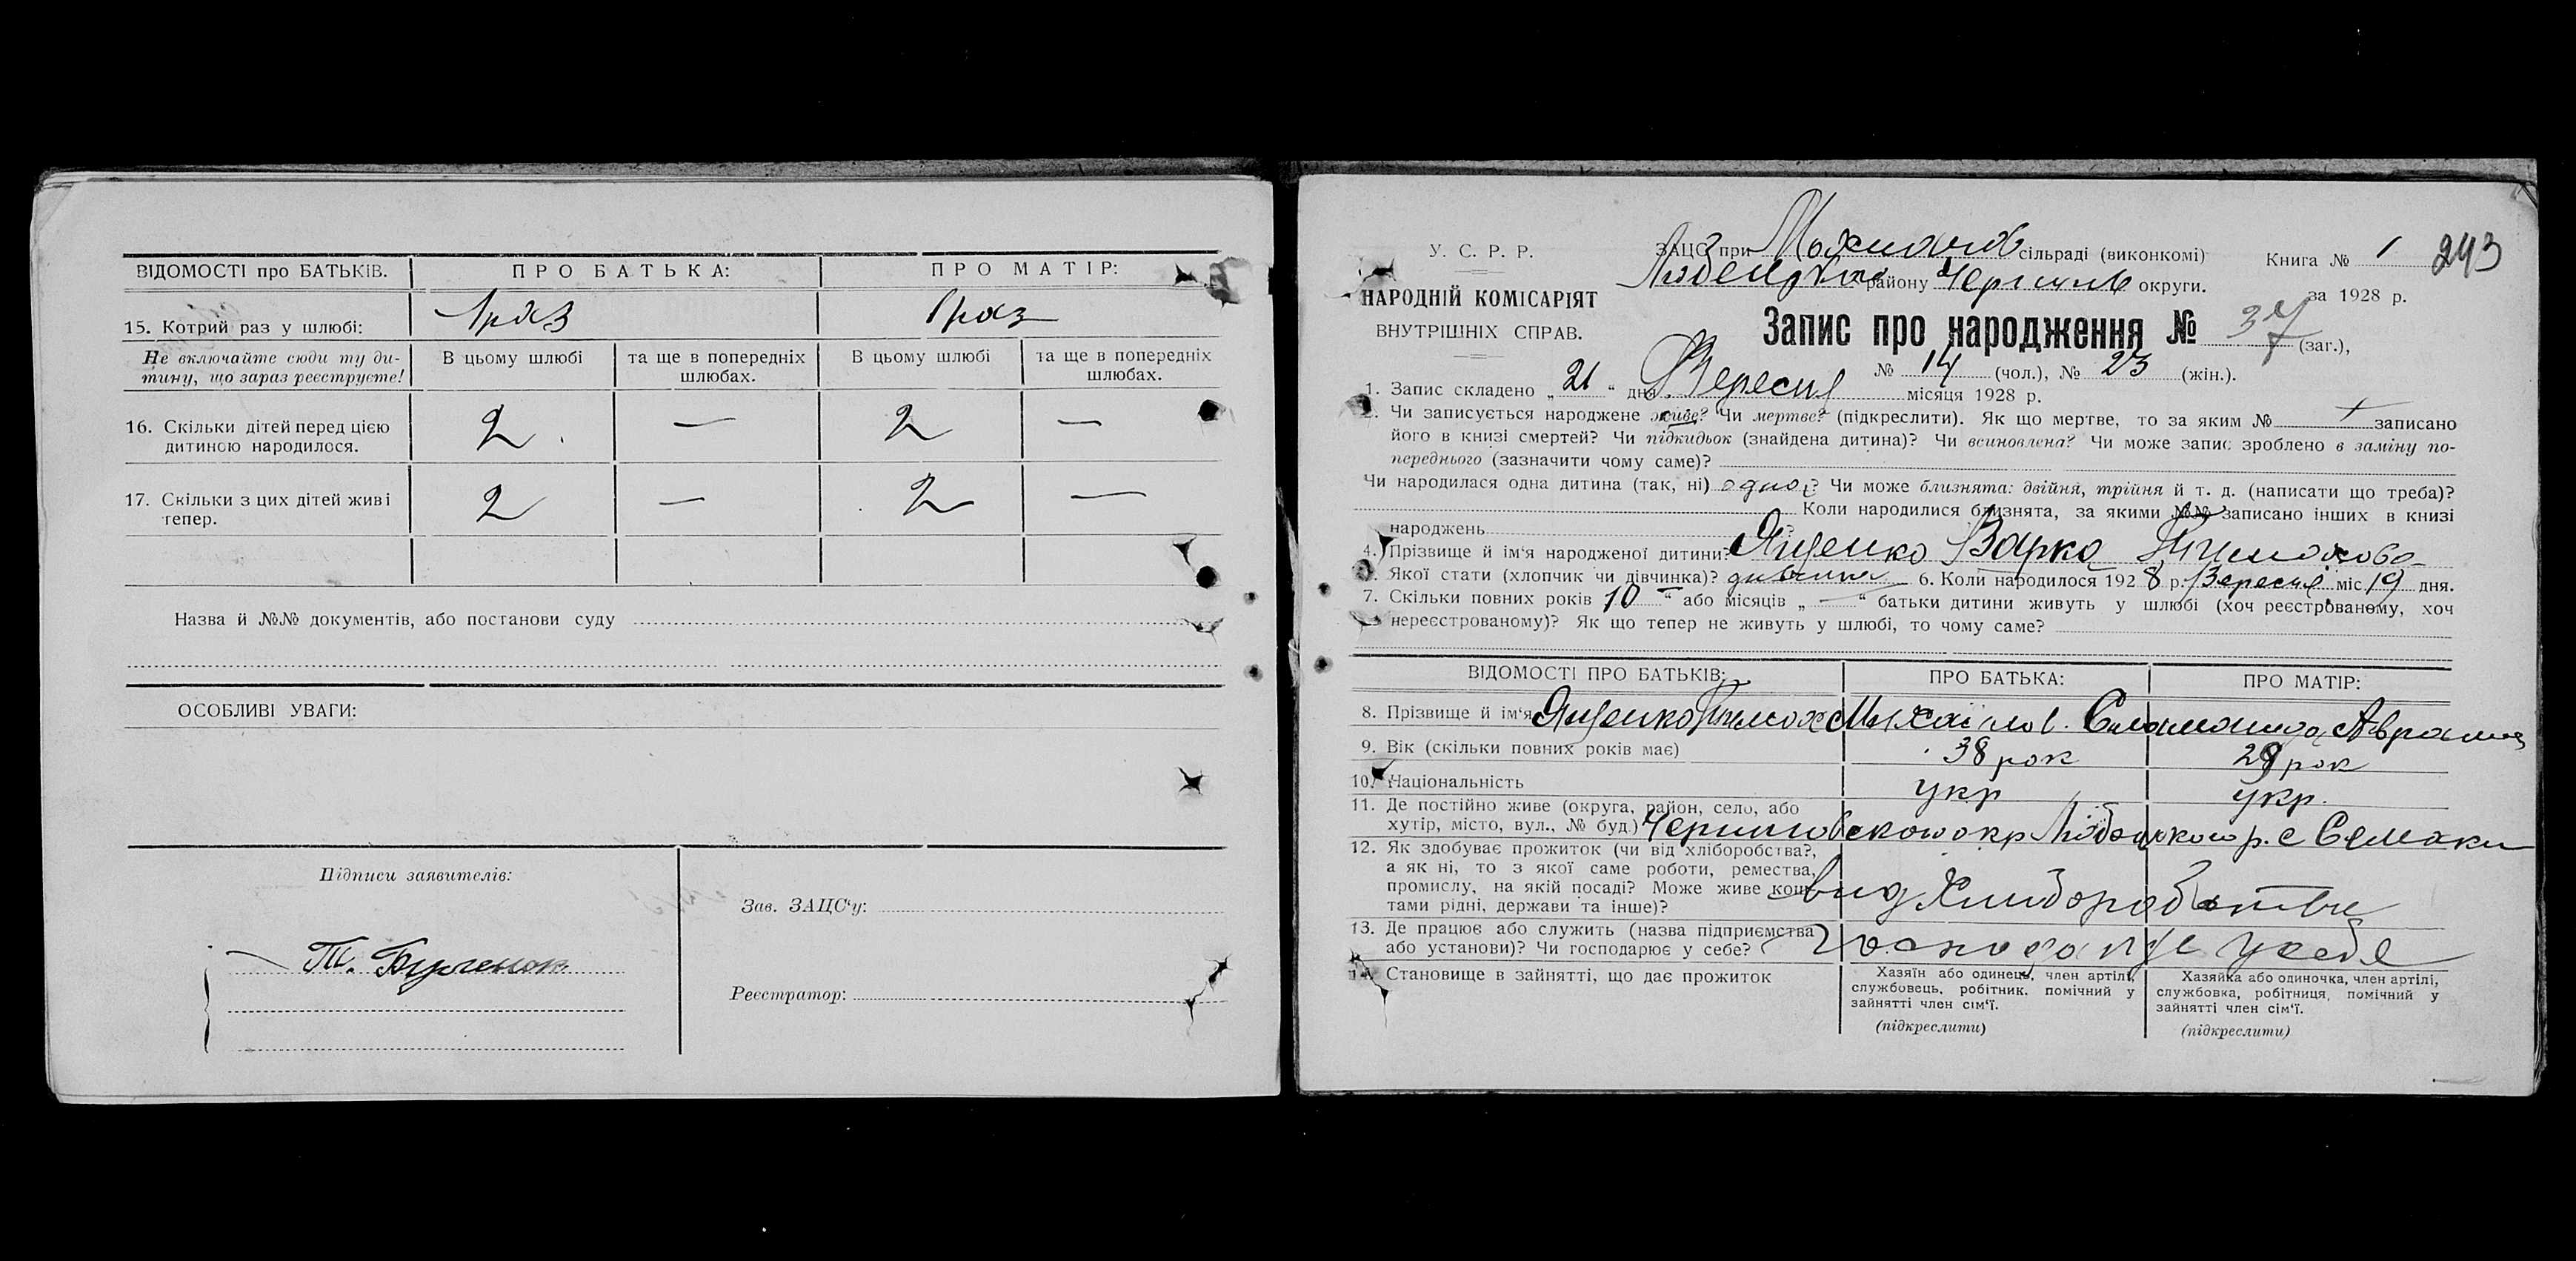 ВІДОМОСТІ про БАТЬКІВ. ПРО БАТЬКА: ПРО МАТІР:
15. Котрий раз у шлюбі: 1 раз 1 раз
Не включайте сюди ту ди- В цьому шлюбі та ще в попередніх В цьому шлюбі та ще в попередніх
тину, що зараз реєструєте! шлюбах. шлюбах.
16. Скільки дітей перед цією 2 — 2 —
дитиною народилося.
17. Скільки з цих дітей живі 2 — 2 —
тепер.
Назва й №№ документів, або постанови суду
ОСОБЛИВІ УВАГИ:
Підписи заявителів:
Зав. ЗАЦС‘у:
Реєстратор:
У. С. Р. Р.
НАРОДНІЙ КОМІСАРІЯТ
ВНУТРІШНІХ СПРАВ.
ЗАЦС при сільраді (виконкомі)
району Черниг округи.
Книга № 1 243
за 1928 р.
Запис про народження № 37 (заг.),
№ 14 (чол.), № 23 (жін.).
1. Запис складено „ 21 “ дня Вересня місяця 1928 р.
2. Чи записується народжене живе? Чи мертве? (підкреслити). Як що мертве, то за яким № записано
його в книзі смертей? Чи підкидьок (знайдена дитина)? Чи всиновлена? Чи може запис зроблено в заміну по-
переднього (зазначити чому саме)?
Чи народилася одна дитина (так, ні) одно? Чи може близнята: двійня, трійня й т. д. (написати що треба)?
Коли народилися близнята, за якими №№ записано інших в книзі
народжень
4. Прізвище й ім‘я народженої дитини? Ященко Варка Тимохова
Якої стати (хлопчик чи дівчинка)? дивчина 6. Коли народилося 1928 р. Вересня міс 19 дня.
7. Скільки повних років 10 “ або місяців „ — “ батьки дитини живуть у шлюбі (хоч реєстрованому, хоч
нереєстрованому)? Як що тепер не живуть у шлюбі, то чому саме?
ВІДОМОСТІ ПРО БАТЬКІВ: ПРО БАТЬКА: ПРО МАТІР:
8. Прізвище й ім‘я Ященко Тимох Михайлов.
9. Вік (скільки повних років має) 38 рок 28 рок
10. Національність укр укр.
11. Де постійно живе (округа, район, село, або
хутір, місто, вул., № буд.) окр р. с Семаки
12. Як здобуває прожиток (чи від хліборобства?,
а як ні, то з якої саме роботи, ремества,
промислу, на якій посаді? Може живе кош-
тами рідні, держави та інше)? вид
13. Де працює або служить (назва підприємства
або установи)? Чи господарює у себе? господарує у себе
14. Становище в зайнятті, що дає прожиток
Хазяїн або одинець, член артілі,
службовець, робітник, помічний у
зайнятті член сім‘ї.
(підкреслити)
Хазяйка або одиночка, член артілі,
службовка, робітниця, помічний у
зайнятті член сім‘ї.
(підкреслити)